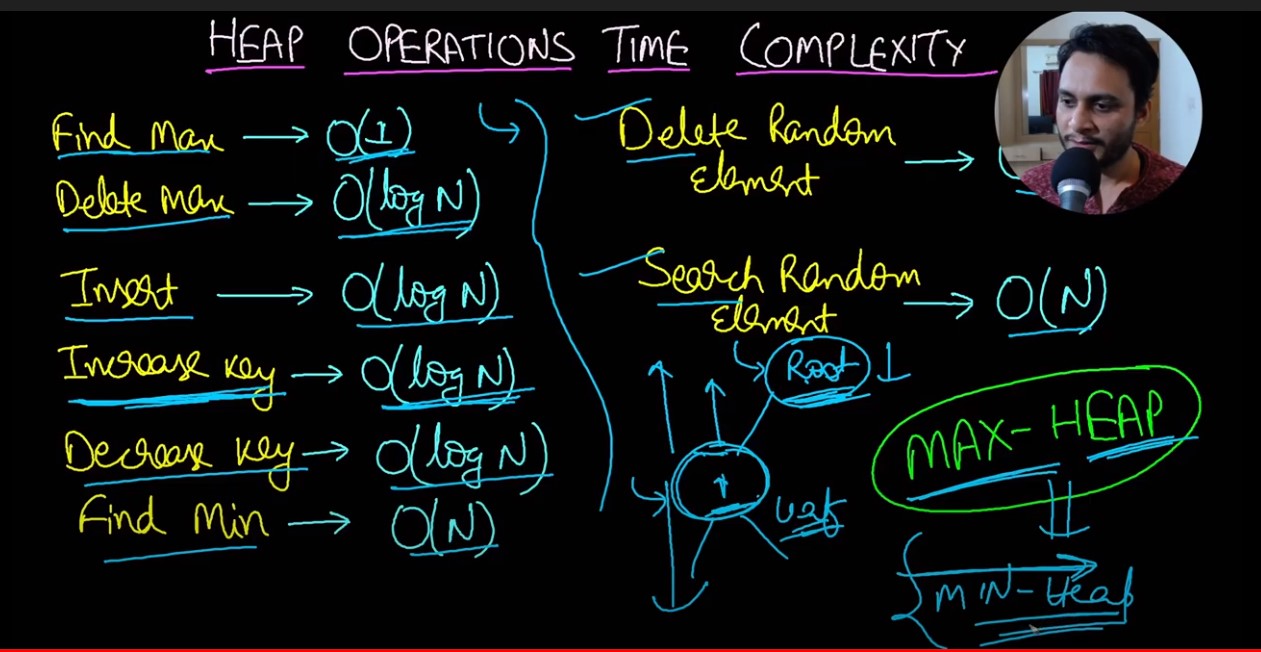 HEAP OPERATIONS TIME COMPLEXITY
Find Max → O(1)
Delete Max → O(log N)
Insert → O(log N)
Increase Key → O(log N)
Decrease Key → O(log N)
Find Min → O(N)
Delete Random
Element →
Search Random
Element → O(N)
Root ↓
↑
Leaf
MAX-HEAP
MIN-Heap